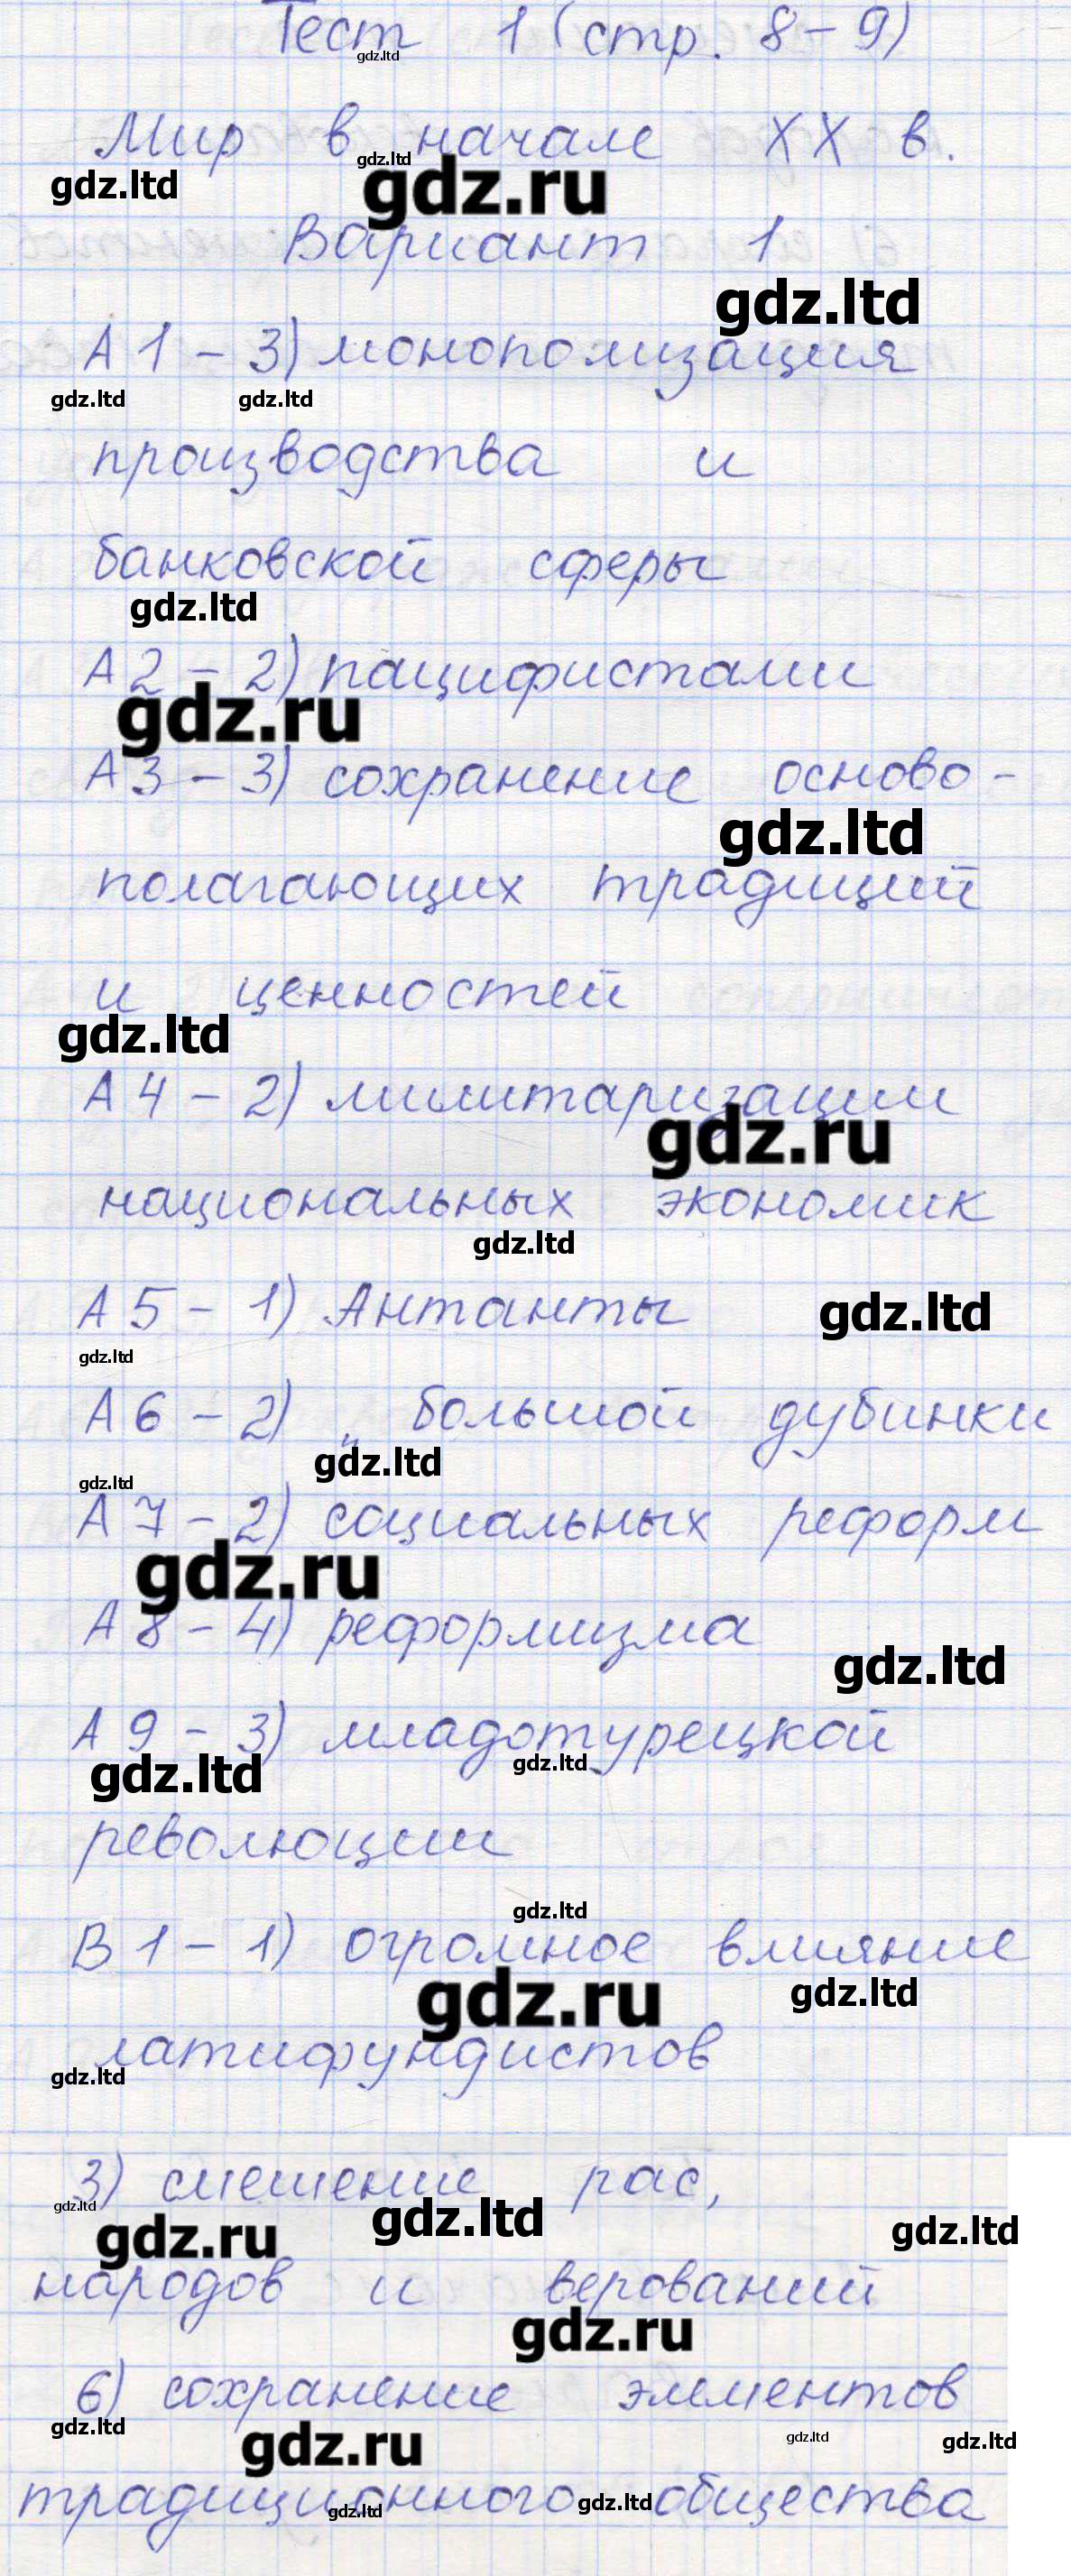 Тест 1 (стр. 8-9)
gdz.ltd
Мир в начале XX в.
gdz.ltd
gdz.ltd
gdz.ru
Вариант 1
gdz.ltd
А1 - 3) монополизация
gdz.ltd gdz.ltd
производства и
банковской сферы
gdz.ltd
А2 - 2) пацифистами
gdz.ru
А3 - 3) сохранение осново-
gdz.ltd
полагающих традиций
и ценностей
gdz.ltd
А4 - 2) милитаризации
gdz.ru
национальных экономик
gdz.ltd
А5 - 1) Антанты
gdz.ltd
gdz.ltd
А6 - 2) „ большой дубинки
gdz.ltd
gdz.ltd
А7 - 2) социальных реформ
gdz.ru
А8 - 4) реформизма
gdz.ltd
А9 - 3) младотурецкой
gdz.ltd gdz.ltd
революции
gdz.ltd
В1 - 1) огромное влияние
gdz.ru gdz.ltd
латифундистов
gdz.ltd
3) смешение рас,
gdz.ltd gdz.ltd
gdz.ru gdz.ltd
народов и верований
gdz.ru
6) сохранение элементов
gdz.ltd gdz.ltd gdz.ltd
gdz.ru
традиционного общества
gdz.ltd gdz.ltd